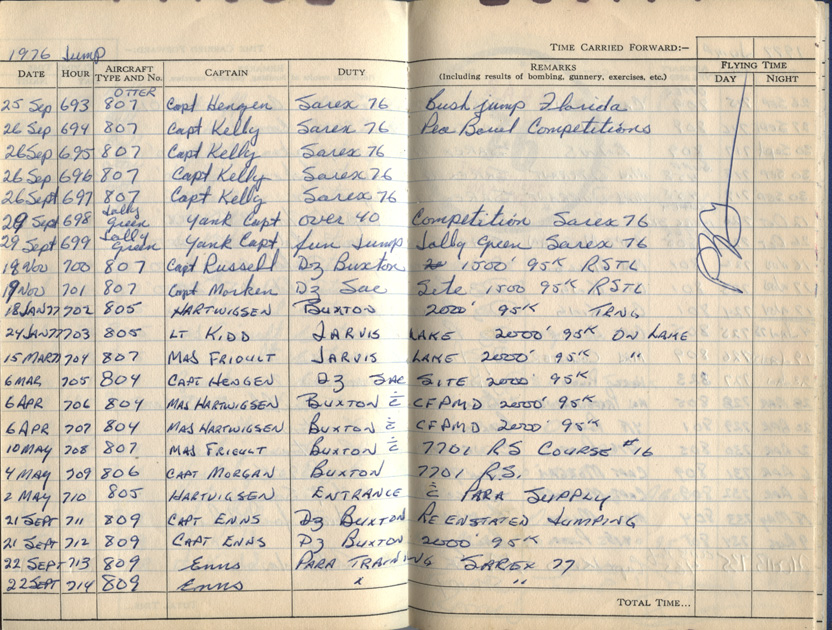 1976 Jump
TIME CARRIED FORWARD:—
DATE HOUR AIRCRAFT TYPE AND No. CAPTAIN DUTY REMARKS (Including results of bombing, gunnery, exercises, etc.) FLYING TIME DAY NIGHT
OTTER
25 Sep 693 807 Capt Hengen Sarex 76 Bush jump Florida
26 Sep 694 807 Capt Kelly Sarex 76 Pea Bowl Competitions
26 Sep 695 807 Capt Kelly Sarex 76
26 Sep 696 807 Capt Kelly Sarex 76
26 Sept 697 807 Capt Kelly Sarex 76
29 Sept 698 Jolly Green Yank Capt over 40 Competition Sarex 76
29 Sept 699 Jolly Green Yank Capt fun Jump Jolly Green Sarex 76
19 Nov 700 807 Capt Russell Dz Buxton 1500' 95K RSTL
19 Nov 701 807 Capt Morken Dz Sac Site 1500 95K RSTL
18 JAN 77 702 805 HARTWIGSEN BUXTON 2000' 95K TRNG
24 JAN 77 703 805 LT KIDD JARVIS LAKE 2000' 95K ON LAKE
15 MAR 77 704 807 MAS FRIOULT JARVIS LAKE 2000' 95K "
6 MAR 705 804 CAPT HENGEN DZ SAC SITE 2000' 95K
6 APR 706 804 MAS HARTWIGSEN BUXTON c̄ CFPMD 2000' 95K
6 APR 707 804 MAS HARTWIGSEN BUXTON c̄ CFPMD 2000' 95K
10 MAY 708 807 MAS FRIEULT BUXTON c̄ 7701 RS COURSE #16
4 MAY 709 806 CAPT MORGAN BUXTON 7701 R.S.
2 MAY 710 805 HARTVIGSEN ENTRANCE c̄ PARA SUPPLY
21 SEPT 711 809 CAPT ENNS DZ BUXTON REENSTATED JUMPING
21 SEPT 712 809 CAPT ENNS DZ BUXTON 2000' 95K
22 SEPT 713 809 ENNS PARA TRAINING SAREX 77
22 SEPT 714 809 ENNS " "
TOTAL TIME...